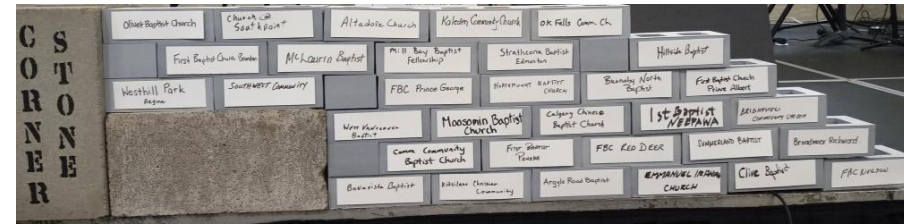 CORNER
STONE
Olivet Baptist Church
Church @
Southpoint
Altadore Church
Kaleden Community Church
OK Falls Comm. Ch.
First Baptist Church Brandon
McLaurin Baptist
Mill Bay Baptist
Fellowship
Strathcona Baptist
Edmonton
Hillside Baptist
Westhill Park
Regina
SOUTHWEST COMMUNITY
FBC Prince George
BAPTIST
CHURCH
Burnaby North
Baptist
First Baptist Church
Prince Albert
West Vancouver
Baptist
Moosomin Baptist
Church
Calgary Chinese
Baptist Church
1st Baptist
NEEPAWA
BRIGHTVIEW
COMMUNITY CHURCH
Community
Baptist Church
First Baptist
Ponoka
FBC RED DEER
SUMMERLAND BAPTIST
Broadmoor Richmond
Bonavista Baptist
Kitsilano Christian
Community
Argyle Road Baptist
EMMANUEL IRANIAN
CHURCH
Clive Baptist
FBC NELSON